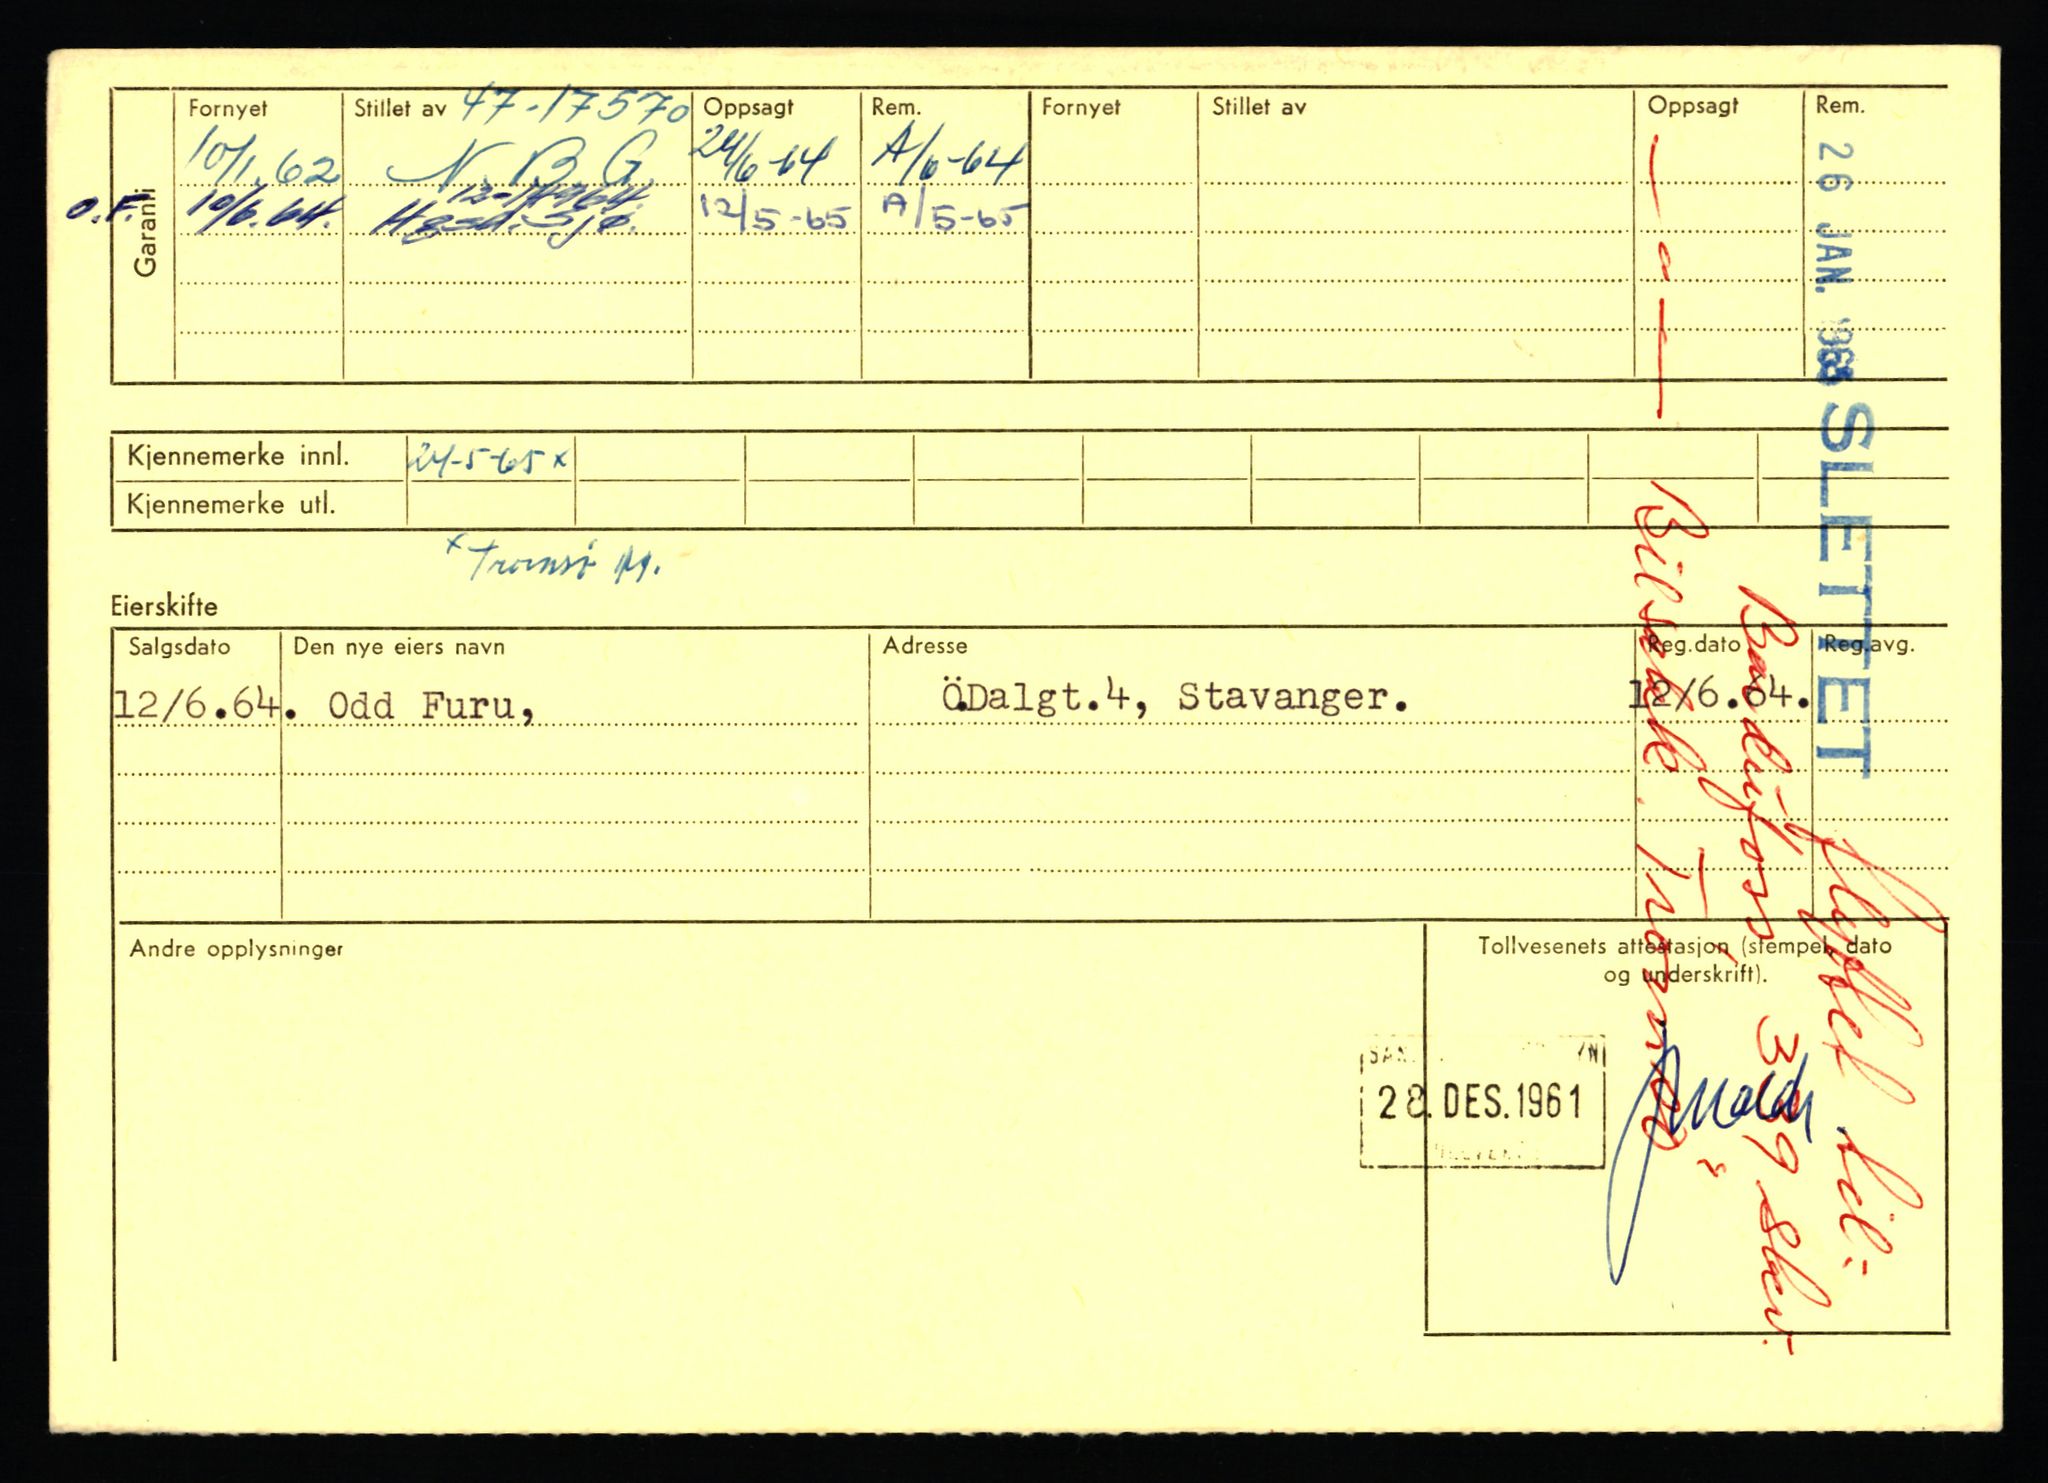 Garanti
Fornyet Stillet av 47-17570 Oppsagt Rem. Fornyet Stillet av Oppsagt Rem.
10/1.62 N. B. G. 24/6-64 A/6-64
O.F. 19/6.64. Hgsd. Sjø. 12/5-65 A/5-65
Kjennemerke innl. 24-5-65 x
Kjennemerke utl.
x Tromsø
Eierskifte
Salgsdato Den nye eiers navn Adresse Reg.dato Reg.avg.
12/6.64. Odd Furu, Ö.Dalgt.4, Stavanger. 12/6.64.
Andre opplysninger
Tollvesenets attestasjon (stempel, dato
og underskrift).
28. DES. 1961
26 JAN. SLETTET
flyttet til:
Bardufoss
Bilsakk. Tromsø